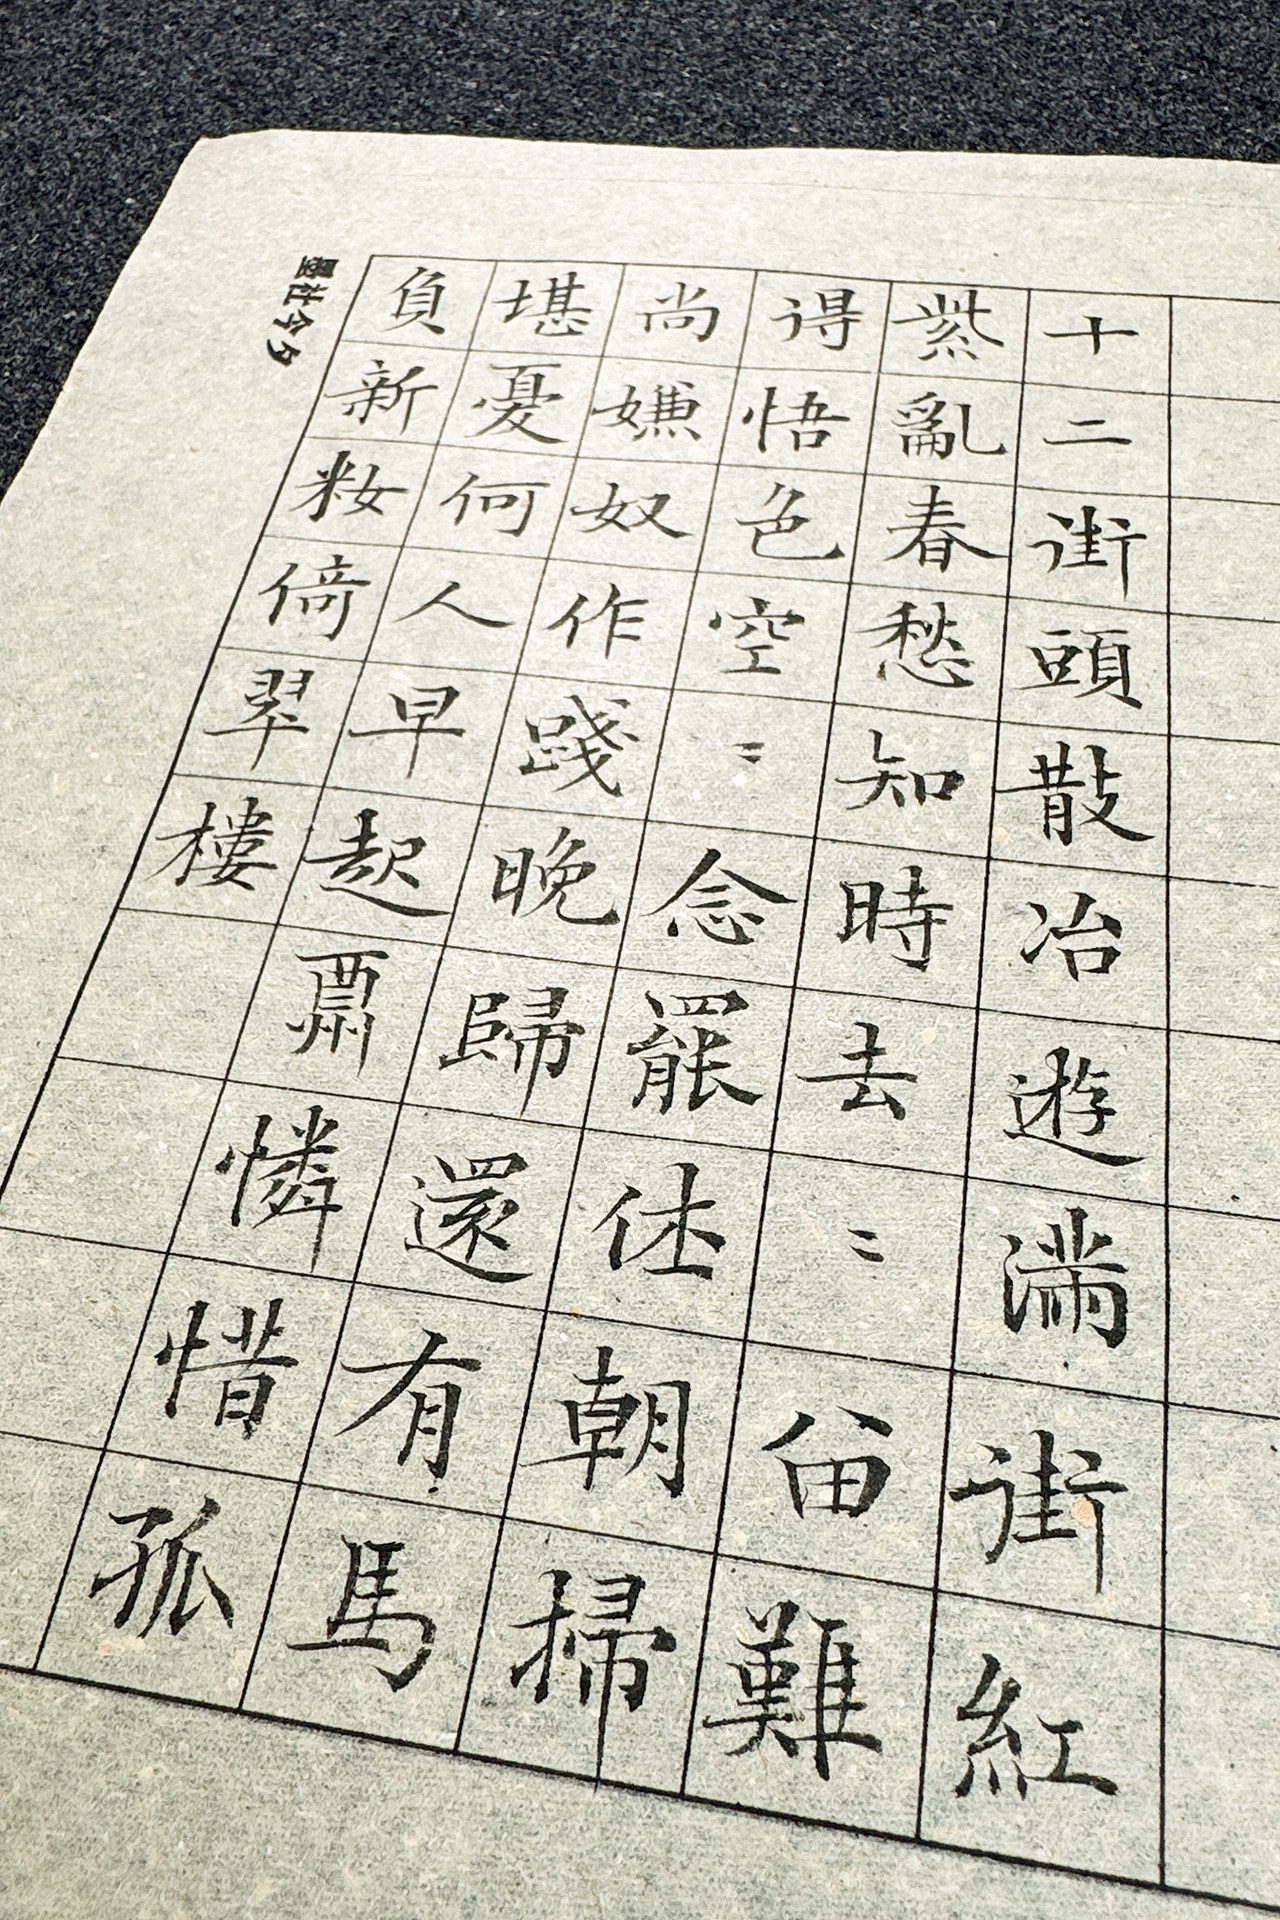 十二街頭散冶遊滿街紅
紫亂春愁知時去〻畱難
得悟色空〻念罷休朝掃
尚嫌奴作踐晚歸還有馬
堪憂何人早起酬憐惜孤
負新妝倚翠樓
墨社今夕